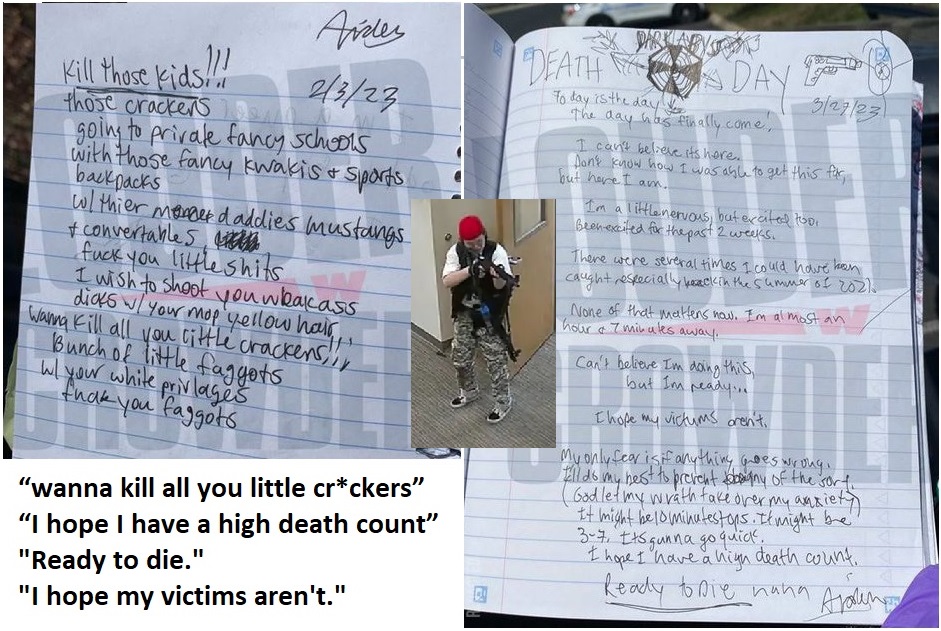 Aiden
Kill those kids!!!
2/3/23
those crackers
going to private fancy schools
with those fancy kwakis + sports
backpacks
w/ thier daddies mustangs
+ convertables
fuck you little shits
I wish to shoot you weakass
dicks w/ your mop yellow hair,
wanna kill all you little crackers!!!
Bunch of little faggots
w/ your white privlages
fuck you faggots
DARK ABYSS
DEATH DAY
3/27/23
Today is the day
The day has finally come,
I can't believe its here.
Don't know how I was able to get this far,
but here I am.
I'm a little nervous, but excited too.
Been excited for the past 2 weeks.
There were several times I could have been
caught especially back in the summer of 2021.
None of that matters now. I'm almost an
hour & 7 minutes away.
Can't believe I'm doing this,
but I'm ready...
I hope my victims aren't.
My only fear is if anything goes wrong.
I'll do my best to prevent any of the sort.
(God let my wrath take over my anxiety)
It might be 10 minutes tops. It might be
3-7. It's gunna go quick.
I hope I have a high death count.
Ready to Die
Aiden
LOUDER
W
CROWDER
LOUDER
CROWDER
“wanna kill all you little cr*ckers”
“I hope I have a high death count”
"Ready to die."
"I hope my victims aren't."